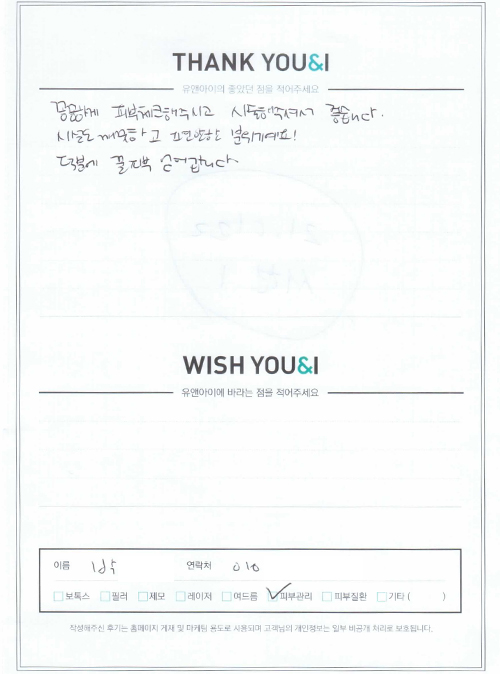 THANK YOU&I
유앤아이의 좋았던 점을 적어주세요
꼼꼼하게 피부체크해주시고 시술해주셔서 좋습니다.
시설도 깨끗하고 편안한 분위기예요!
덕분에 꿀피부 얻어갑니다
WISH YOU&I
유앤아이에 바라는 점을 적어주세요
이름 연락처 010
보톡스 필러 제모 레이저 여드름 피부관리 피부질환 기타 ( )
작성해주신 후기는 홈페이지 게재 및 마케팅 용도로 사용되며 고객님의 개인정보는 일부 비공개 처리로 보호됩니다.